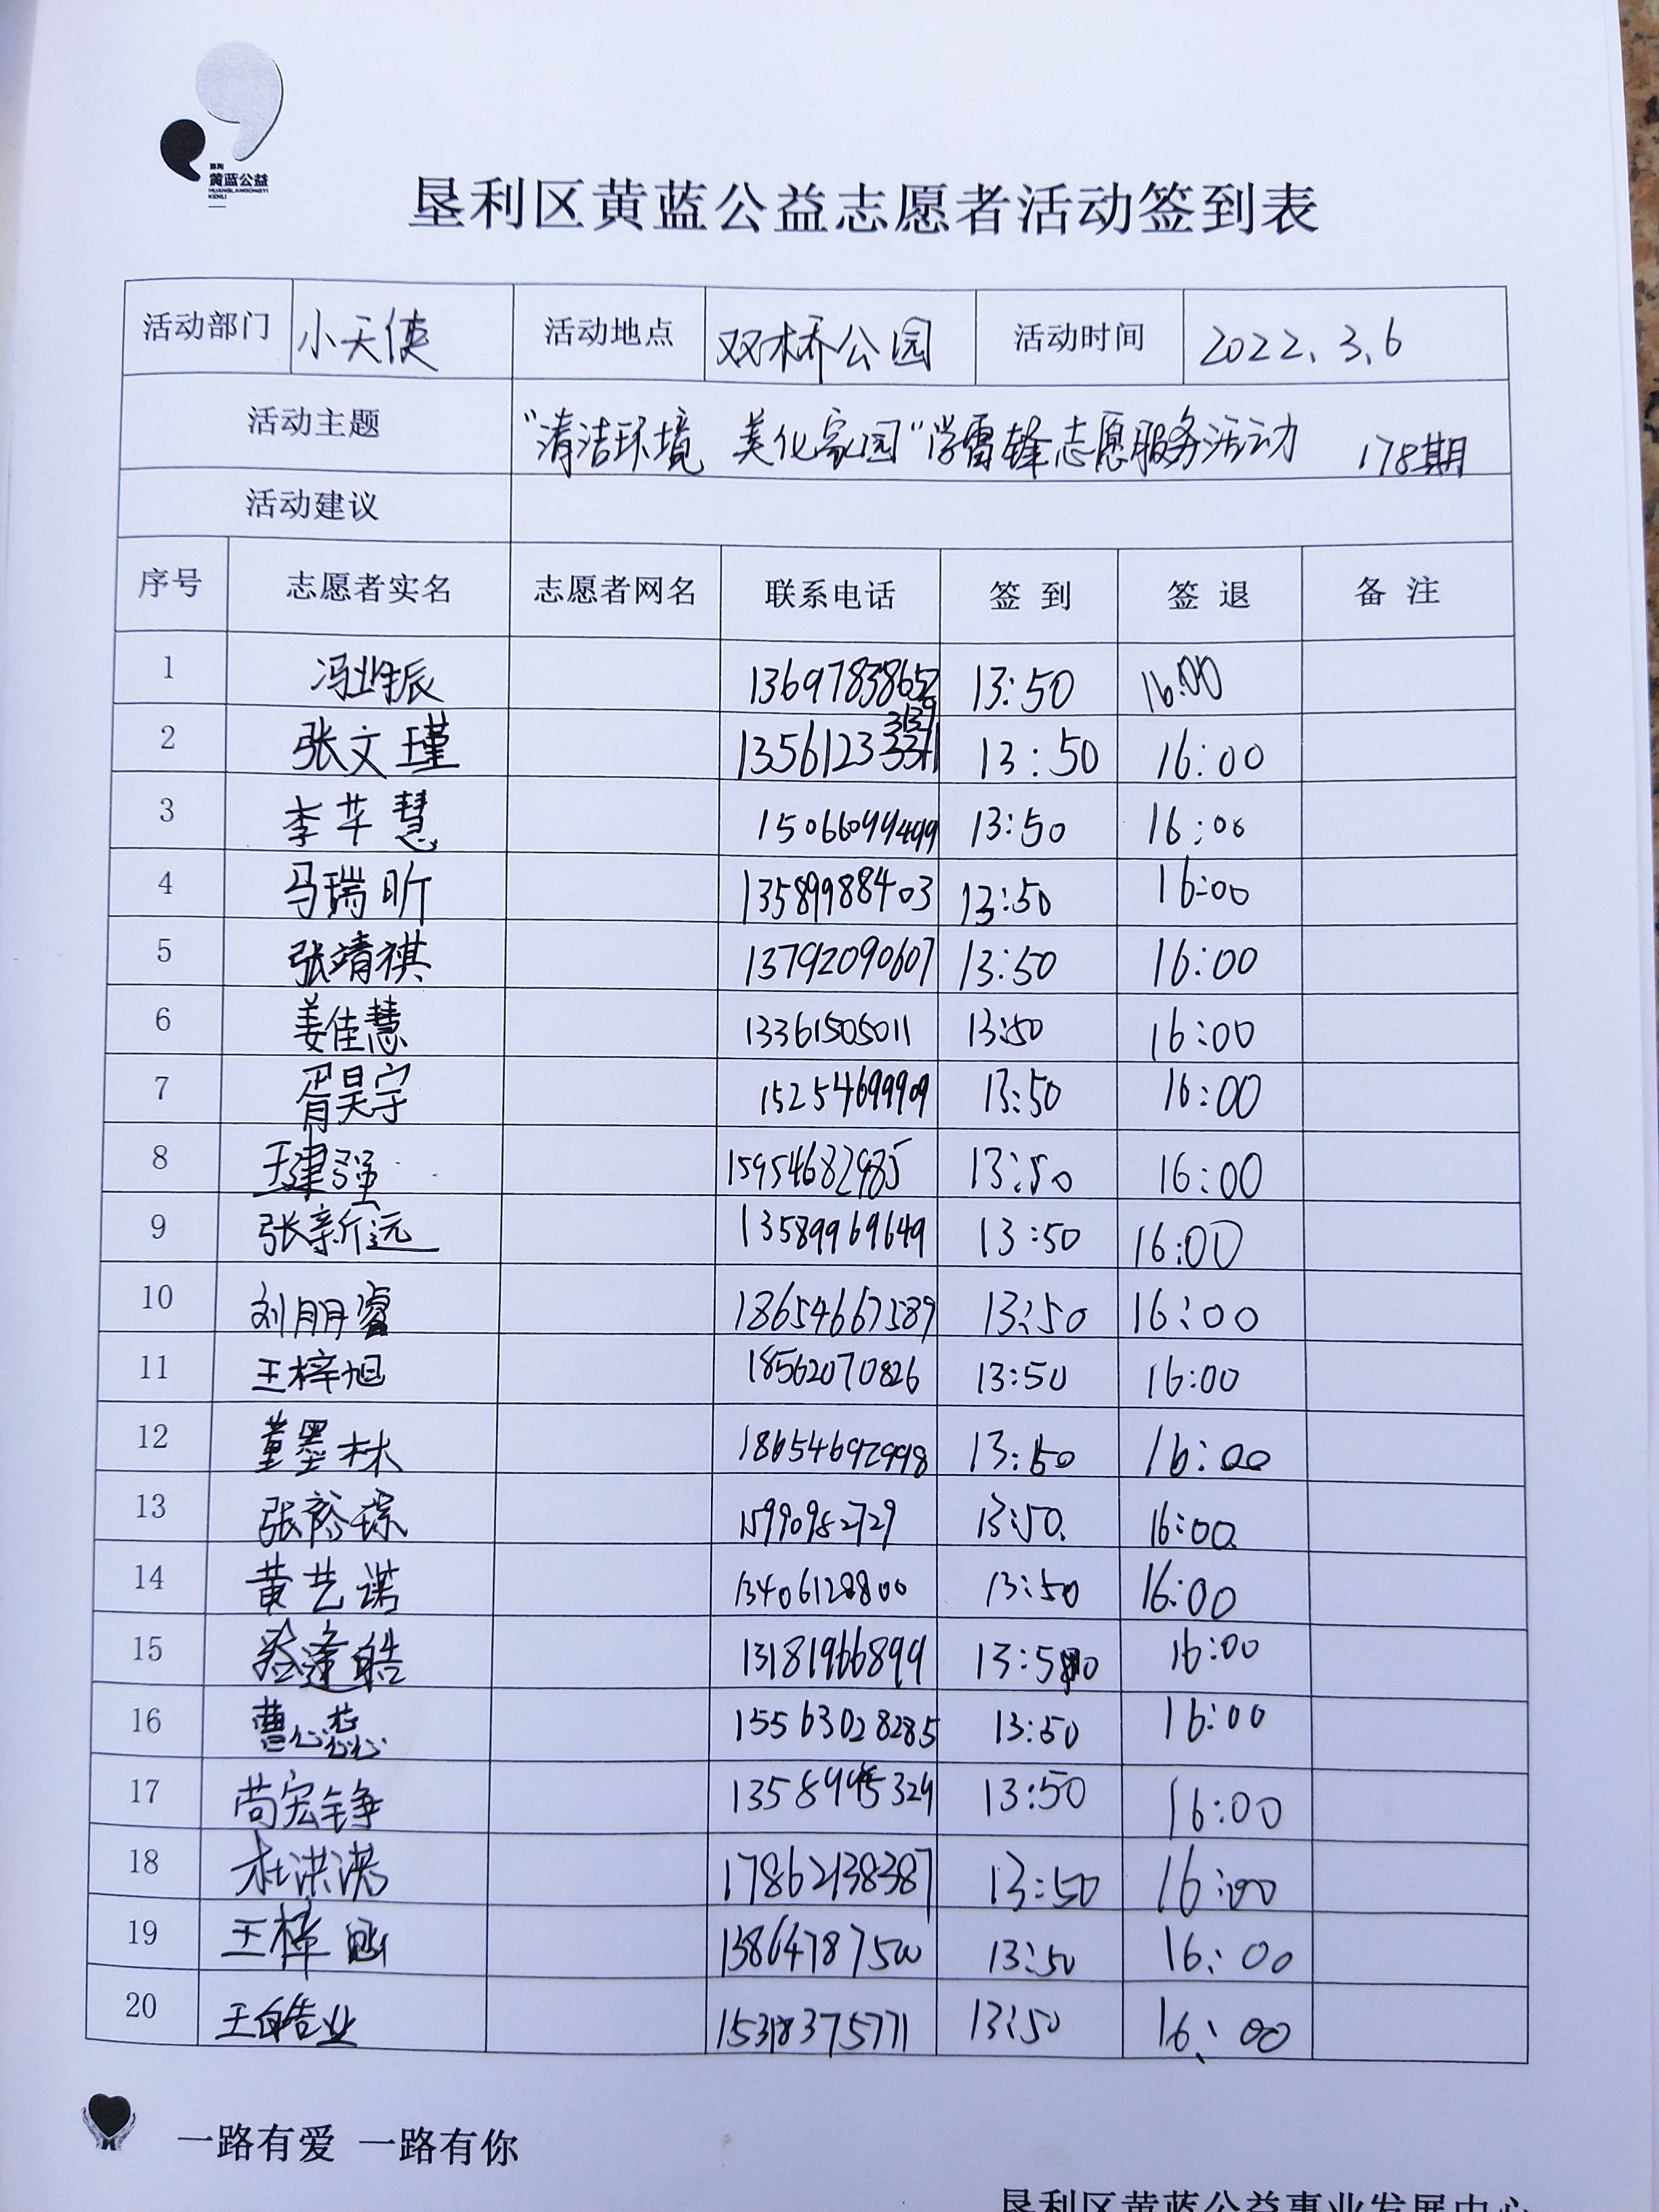 垦利
黄蓝公益
HUANGLANGONGYI
KENLI
垦利区黄蓝公益志愿者活动签到表
活动部门 小天使 活动地点 双桥公园 活动时间 2022.3.6
活动主题 "清洁环境 美化家园"学雷锋志愿服务活动 178期
活动建议
序号 志愿者实名 志愿者网名 联系电话 签到 签退 备注
1 冯 振 13697838652 13:50 16:00
2 张文瑾 1356123 13:50 16:00
3 李芊慧 15066094499 13:50 16:00
4 马瑞昕 13589988403 13:50 16:00
5 张靖祺 13792090607 13:50 16:00
6 姜佳慧 13361505011 13:50 16:00
7 胥昊宇 15254699909 13:50 16:00
8 王建强 15954682985 13:50 16:00
9 张新远 13589969649 13:50 16:00
10 刘朋睿 18654667589 13:50 16:00
11 王梓旭 18562070826 13:50 16:00
12 董墨林 18654692998 13:50 16:00
13 张裕琮 15990952729 13:50 16:00
14 黄艺诺 13406128800 13:50 16:00
15 逢皓 13181966899 13:50 16:00
16 曹心蕊 15563028285 13:50 16:00
17 苘宏铮 13:50 16:00
18 杜洪漠 17862138387 13:50 16:00
19 王梓 13864787500 13:50 16:00
20 王皓业 15318375771 13:50 16:00
一路有爱 一路有你
垦利区黄蓝公益事业发展中心